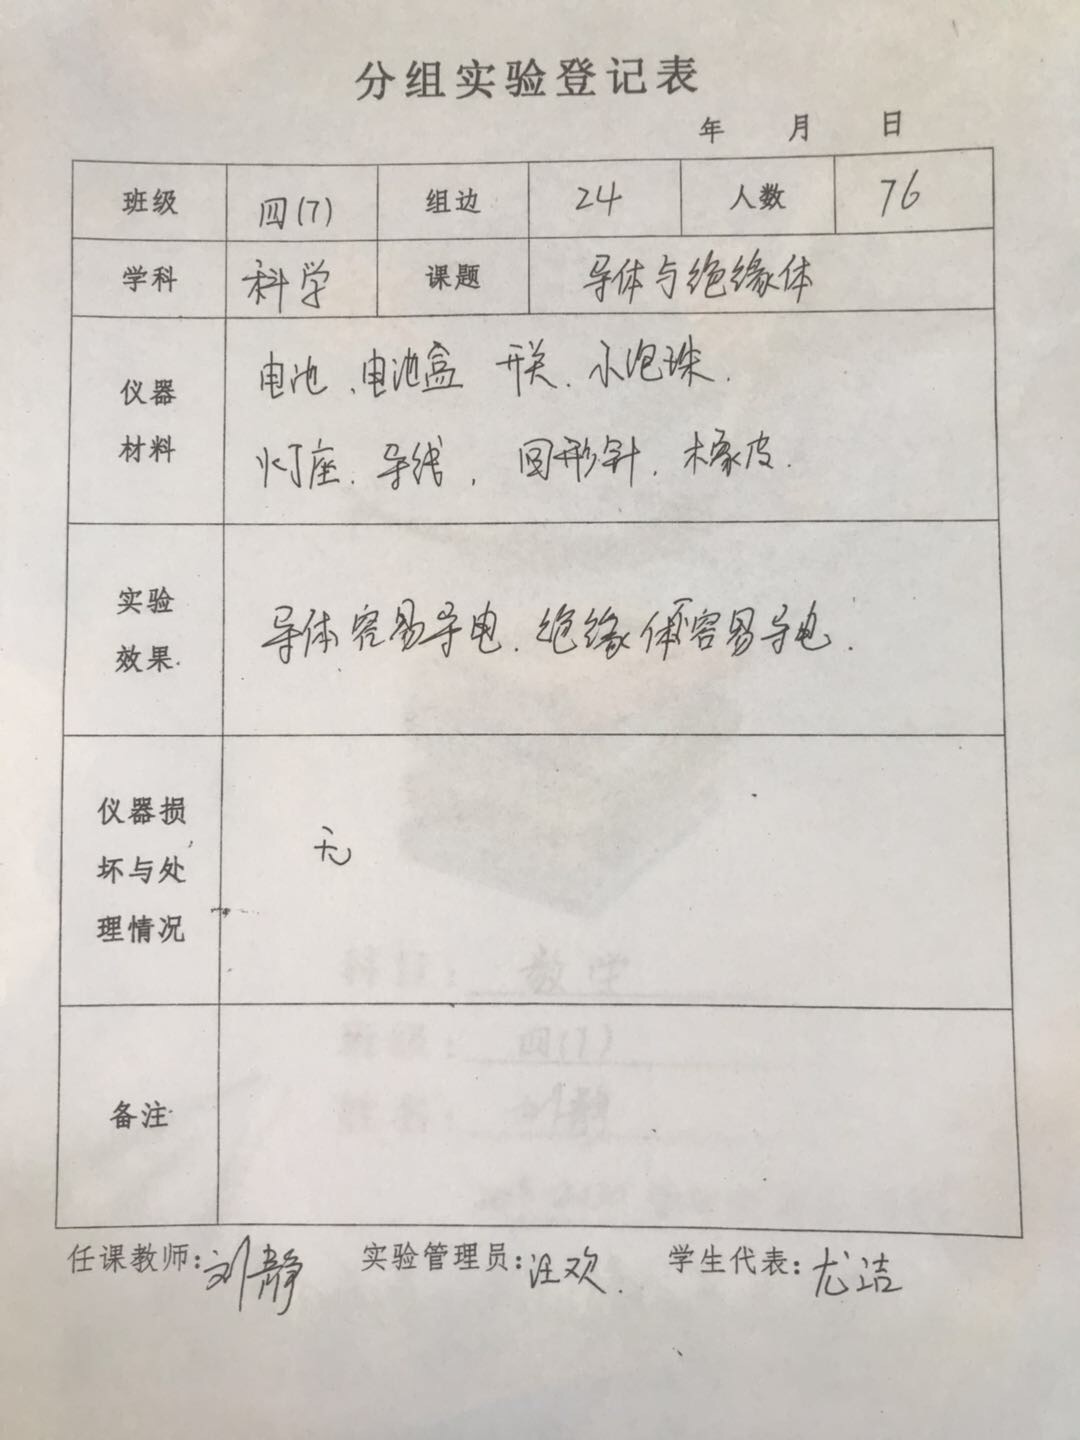 分组实验登记表
年 月 日
班级 四(7) 组边 24 人数 76
学科 科学 课题 导体与绝缘体
仪器材料
电池、电池盒 开关、小泡珠.
灯座、导线, 回形针、橡皮.
实验效果
导体容易导电、绝缘体不容易导电.
仪器损坏与处理情况
无
备注
任课教师:刘静 实验管理员:汪欢. 学生代表:尤洁